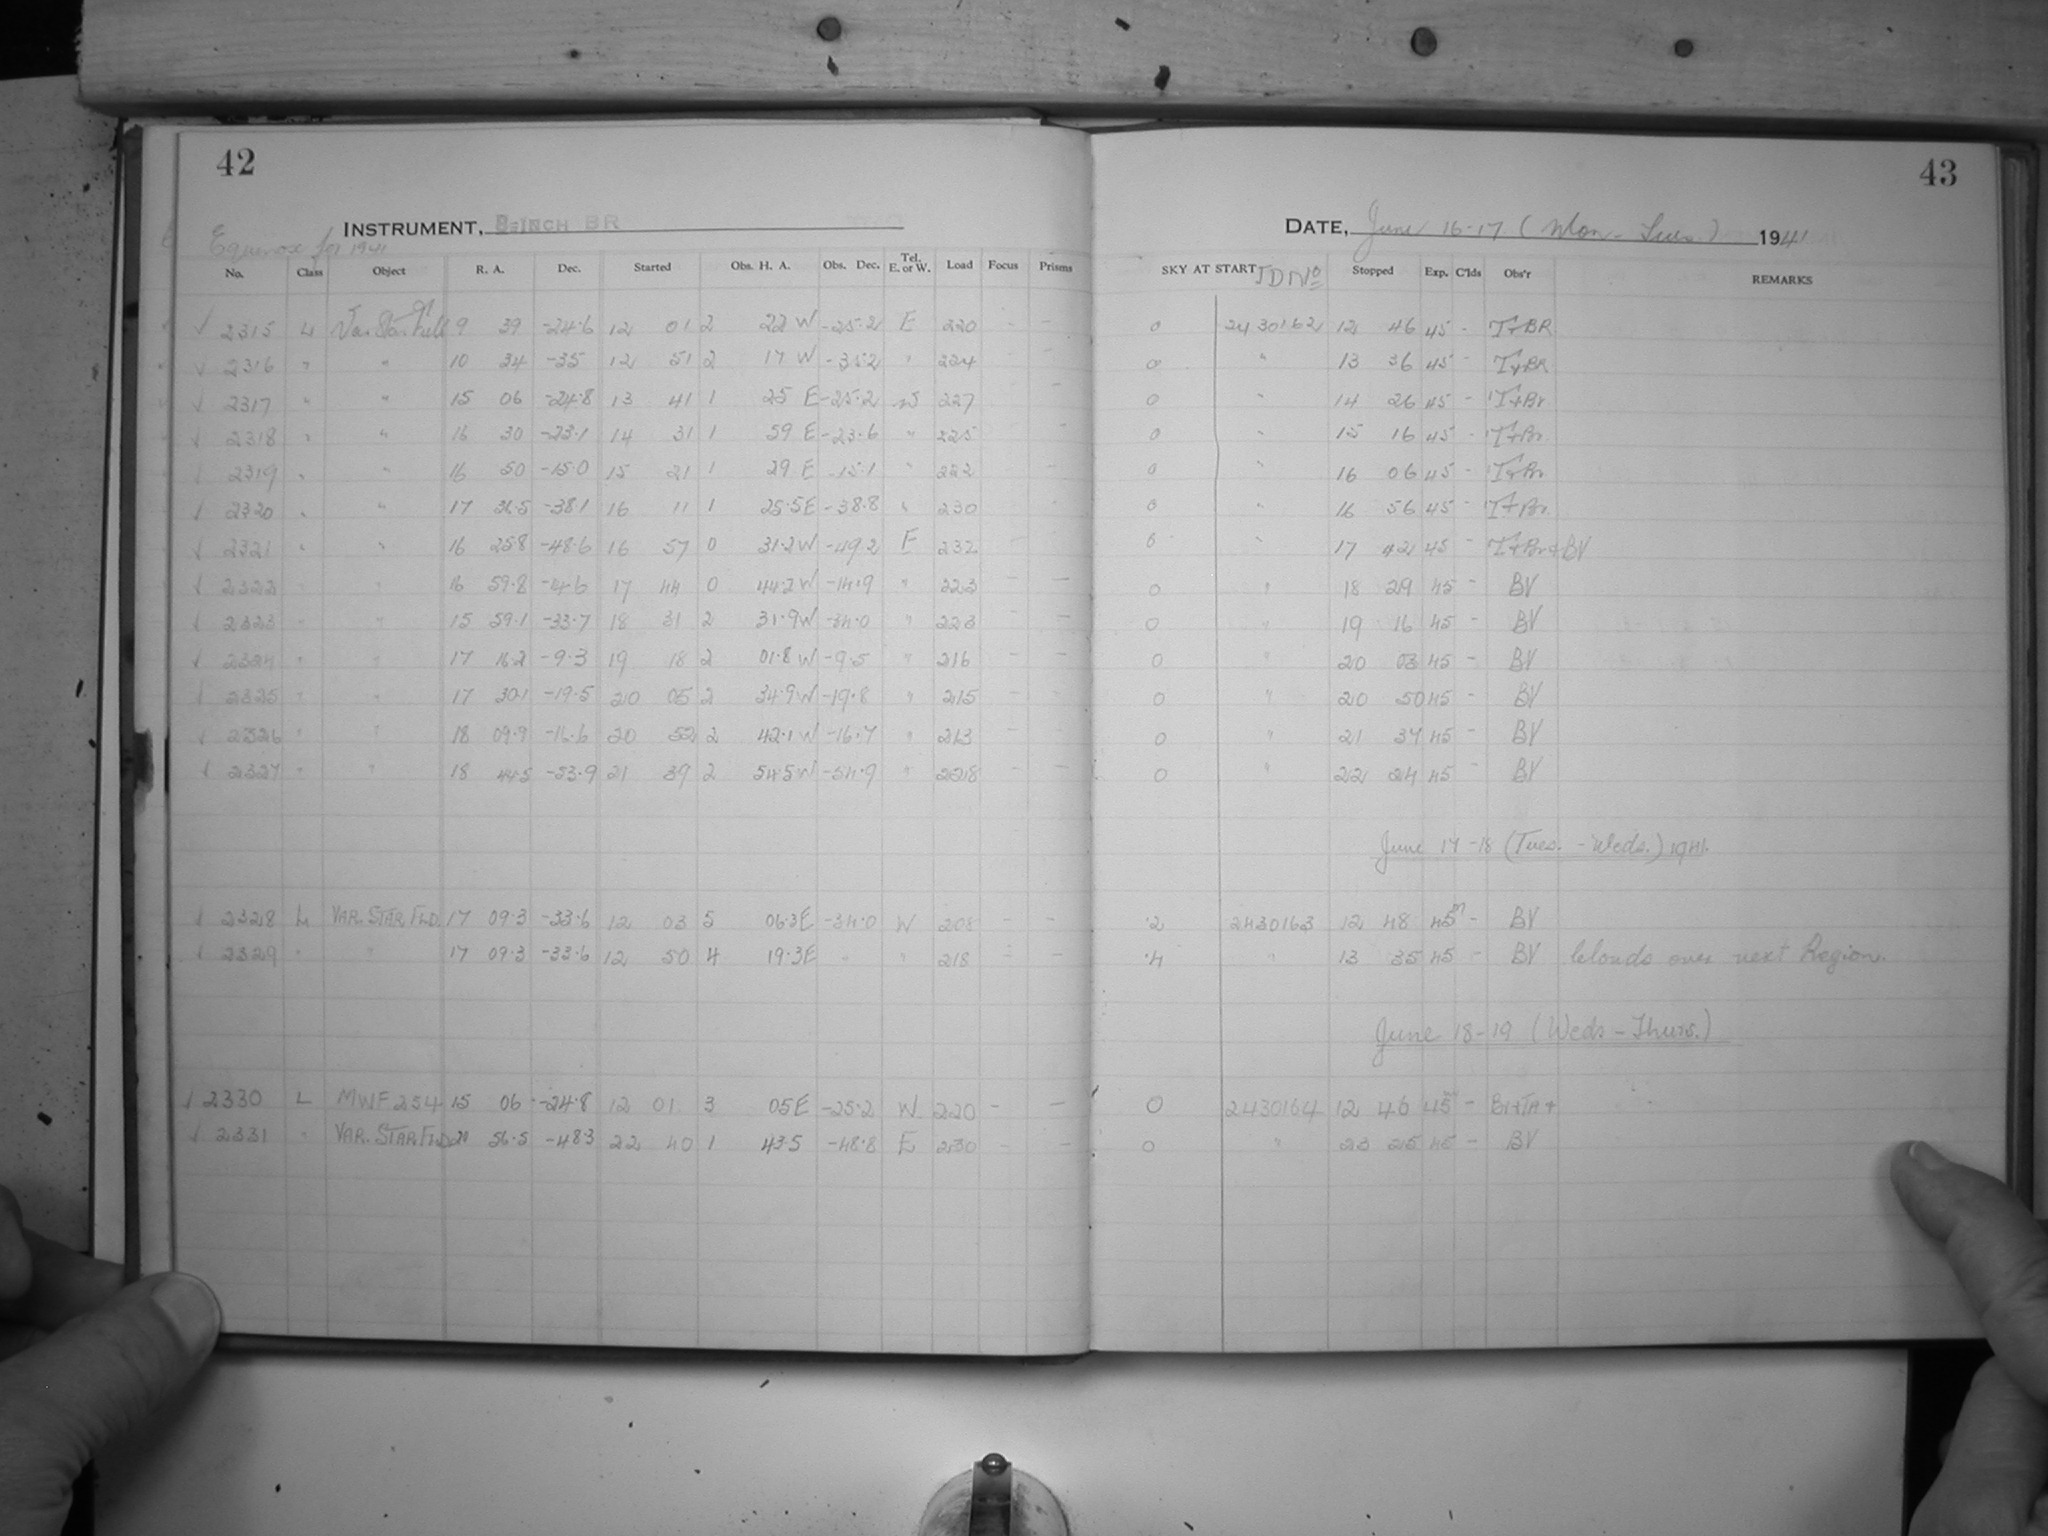 42
43
INSTRUMENT, 8-INCH BR
DATE, June 16-17 (Mon - Tues.) 1941
for 1941
No. Class Object R. A. Dec. Started Obs. H. A. Obs. Dec. Tel. E. or W. Load Focus Prisms SKY AT START JD No Stopped Exp. C'lds Obs'r REMARKS
√ 2315 L Var Star Field 9 39 -24.6 12 01 2 22 W -25.2 E 220 - - 0 2430162 12 46 45 - T+BR
√ 2316 " " 10 34 -35 12 51 2 17 W -35.2 " 224 - 0 " 13 36 45 - T+BR
√ 2317 " " 15 06 -24.8 13 41 1 25 E -25.2 W 227 - 0 " 14 26 45 - T+Br
√ 2318 " " 16 30 -23.1 14 31 1 59 E -23.6 " 225 - 0 " 15 16 45 - T+Br
√ 2319 " " 16 50 -15.0 15 21 1 29 E -15.1 " 222 - 0 " 16 06 45 - T+Br
√ 2320 " " 17 36.5 -38.1 16 11 1 25.5E -38.8 " 230 - 0 " 16 56 45 - T+Br
√ 2321 " " 16 25.8 -48.6 16 57 0 31.2W -49.2 E 232 - - 0 " 17 42 45 - T+Br+BV
√ 2322 " " 16 59.8 17 44 0 44.2W -14.9 " 223 - - 0 " 18 29 45 - BV
√ 2323 " " 15 59.1 -33.7 18 31 2 31.9W -34.0 " 223 - - 0 " 19 16 45 - BV
√ 2324 " " 17 16.2 -9.3 19 18 2 01.8 W -9.5 " 216 - - 0 " 20 03 45 - BV
√ 2325 " " 17 30.1 -19.5 20 05 2 34.9W -19.8 " 215 - - 0 " 20 50 45 - BV
√ 2326 " " 18 09.9 -16.6 20 52 2 42.1 W -16.7 " 213 - - 0 " 21 37 45 - BV
√ 2327 " " 18 44.5 -53.9 21 39 2 54.5W -54.9 " 228 - - 0 " 22 24 45 - BV
June 17-18 (Tues. - Weds.) 1941.
√ 2328 L VAR. STAR FLD. 17 09.3 -33.6 12 03 5 06.3E -34.0 W 208 - - .2 2430163 12 48 45m - BV
√ 2329 " 17 09.3 -33.6 12 50 4 19.3E " " 218 - - .4 " 13 35 45 - BV Clouds over next Region.
June 18-19 (Weds - Thurs.)
√ 2330 L MWF 254 15 06 -24.8 12 01 3 05E -25.2 W. 220 - - 0 2430164 12 46 45m -
√ 2331 " VAR. STAR FLD. 20 56.5 -48.3 22 40 1 43.5 -48.8 E 230 - - 0 " 23 25 45 - BV